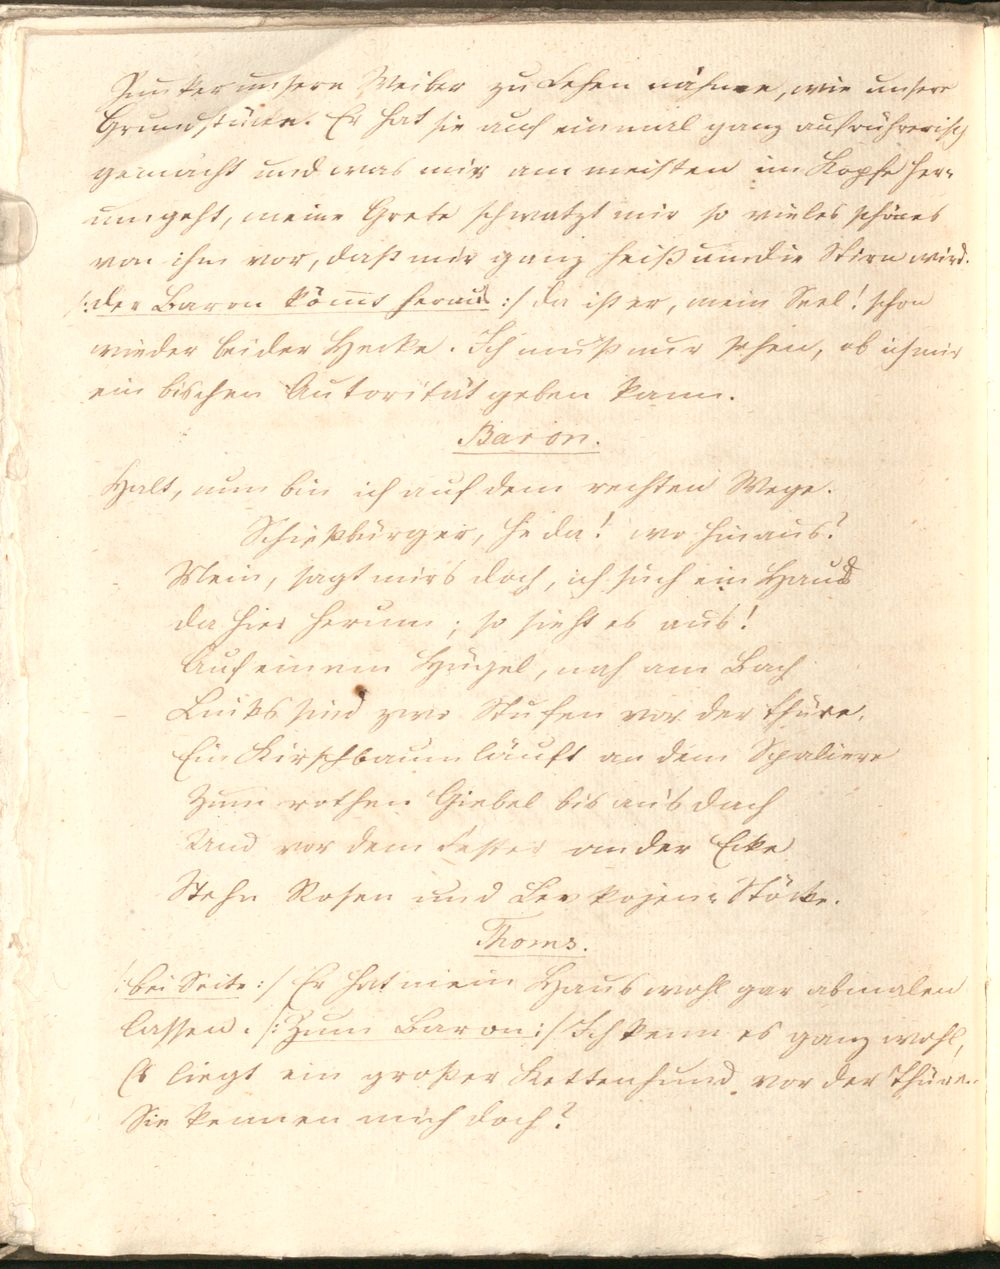 Junker unsere Weiber zu Lehen nähme, wie unsere
Grundstücke. Er hat sie auch einmal ganz aufrührerisch
gemacht und was mir am meisten im Kopfe her=
umgeht, meine Grete schwatzt mir so vieles schönes
von ihm vor, daß mir ganz heiß um die Stirn wird.
/: der Baron kömt heraus :/ da ist er, mein Seel! schon
wieder bei der Hecke. Ich muß nur sehen, ob ich mir
ein bischen Autorität geben kann.
Baron.
Halt, nun bin ich auf dem rechten Wege.
Schießbürger, he da! wo hinaus?
Mein, sagt mirs doch, ich such ein Haus
da hier herum; so sieht es aus!
Auf einem Hügel, nah am Bach
Links sind zwo Stufen vor der thüre,
Ein Kirschbaum läuft an dem Spaliere
Zum rothen Giebel bis ans dach
Und vor dem an der Ecke
Stehn Rosen und Levkojen=Stöcke.
Thoms.
/: bei Seite :/ Er hat mein Haus wohl gar abmalen
lassen. /: Zum Baron :/ Ich kenn es ganz wohl,
Es liegt ein großer Kettenhund vor der Thüre.
Sie kennen mich doch?